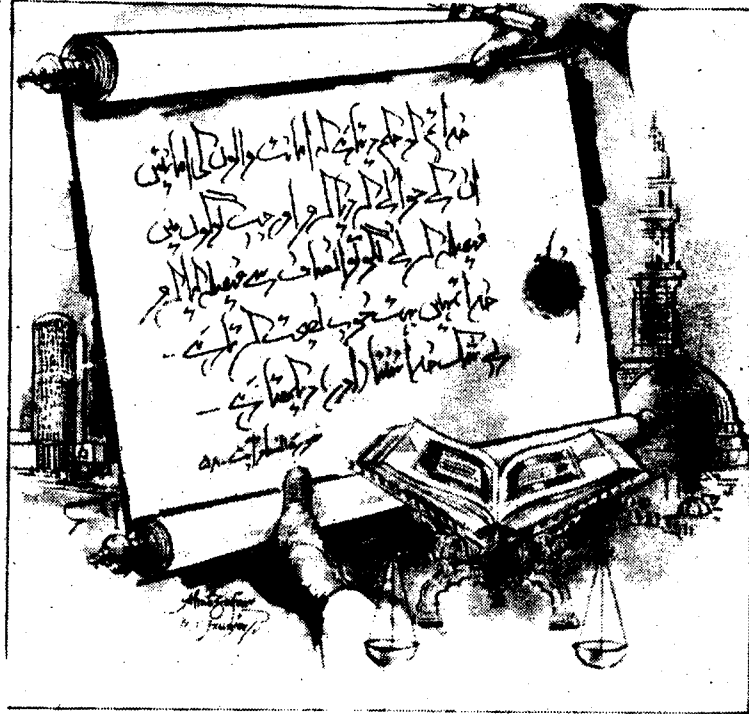 خدا تم کو حکم دیتا ہے کہ امانت والوں کی امانتیں
ان کے حوالے کر دیا کرو اور جب لوگوں میں
فیصلہ کرنے لگو تو انصاف سے فیصلہ کیا کرو
خدا تمہیں بہت خوب نصیحت کرتا ہے ۔۔
بے شک خدا سنتا (اور) دیکھتا ہے ۔۔
سورۃ النساء آیت